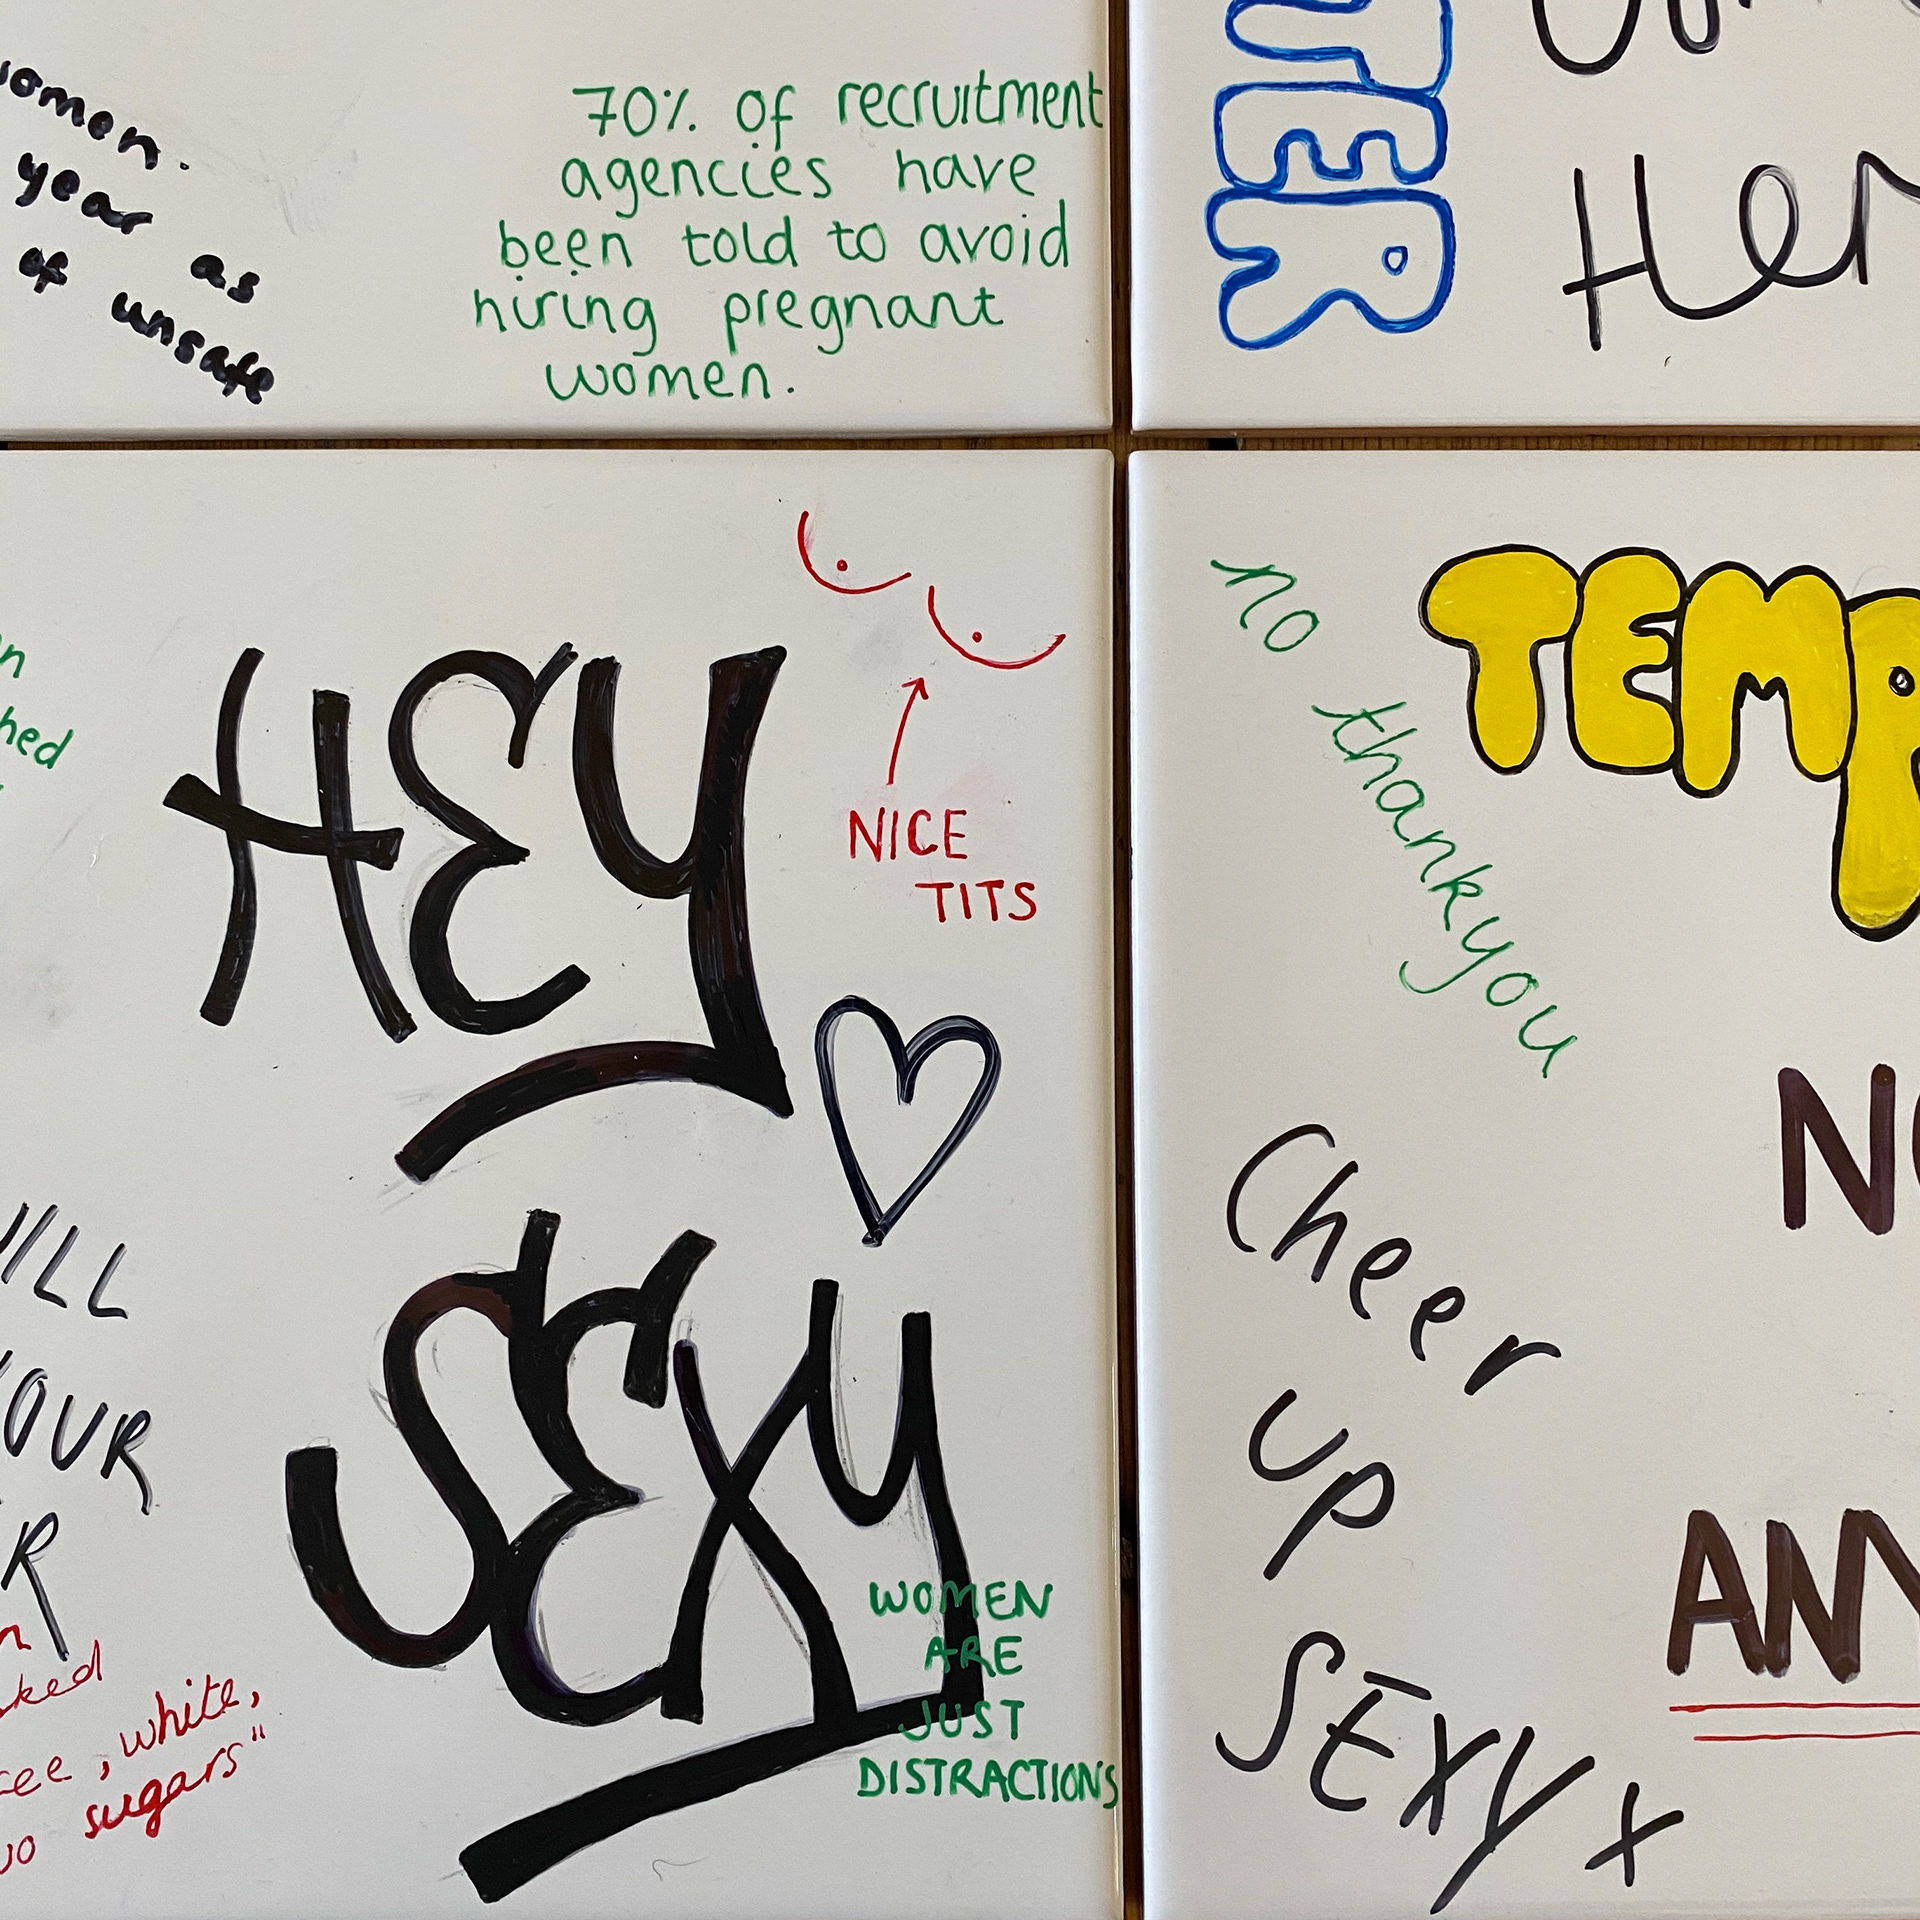 women.
year as
of unsafe
70% of recruitment
agencies have
been told to avoid
hiring pregnant
women.
TER
Her
HEY
SEXY
NICE
TITS
WOMEN
ARE
JUST
DISTRACTIONS
WILL
YOUR
white,
sugars"
no
thankyou
TEMP
Cheer
up
SEXY x
ANY